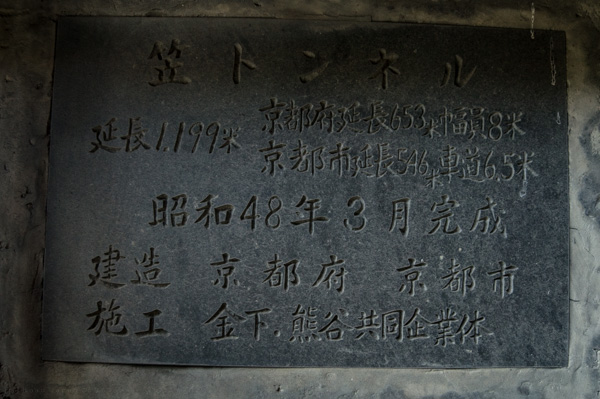 笠トンネル
延長1,199米 京都府延長653米 幅員8米
京都市延長546米 車道6.5米
昭和48年3月完成
建造 京都府 京都市
施工 金下.熊谷共同企業体